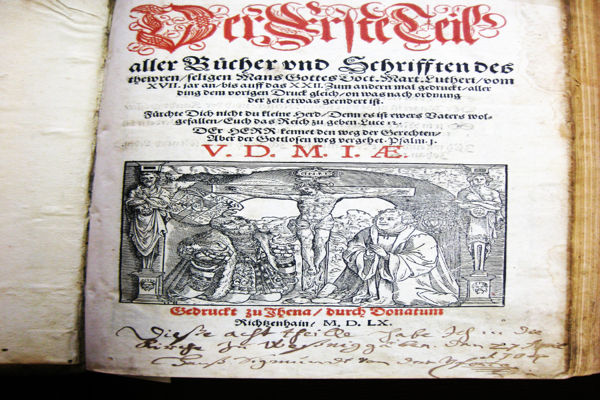 Der Erste Teil
aller Bücher vnd Schrifften des
thewren / seligen Mans Gottes Doct. Mart. Lutheri / vom
XVII. jar an / bis auff das XXII. Zum andern mal gedruckt / aller
ding dem vorigen Druck gleich / on was nach ordnung
der zeit etwas geendert ist.
Fürchte Dich nicht du kleine Herd / Denn es ist ewers Vaters wol-
gefallen / Euch das Reich zu geben Luce 12.
DER HERR kennet den weg der Gerechten /
Aber der Gottlosen weg vergehet. Psalm. 1.
V. D. M. I. Æ.
Gedruckt zu Jhena / durch Donatum
Richtzenhain / M. D. LX.
Diese acht theille habe Ich in die
Kirche zu gegeben. den 27
von der